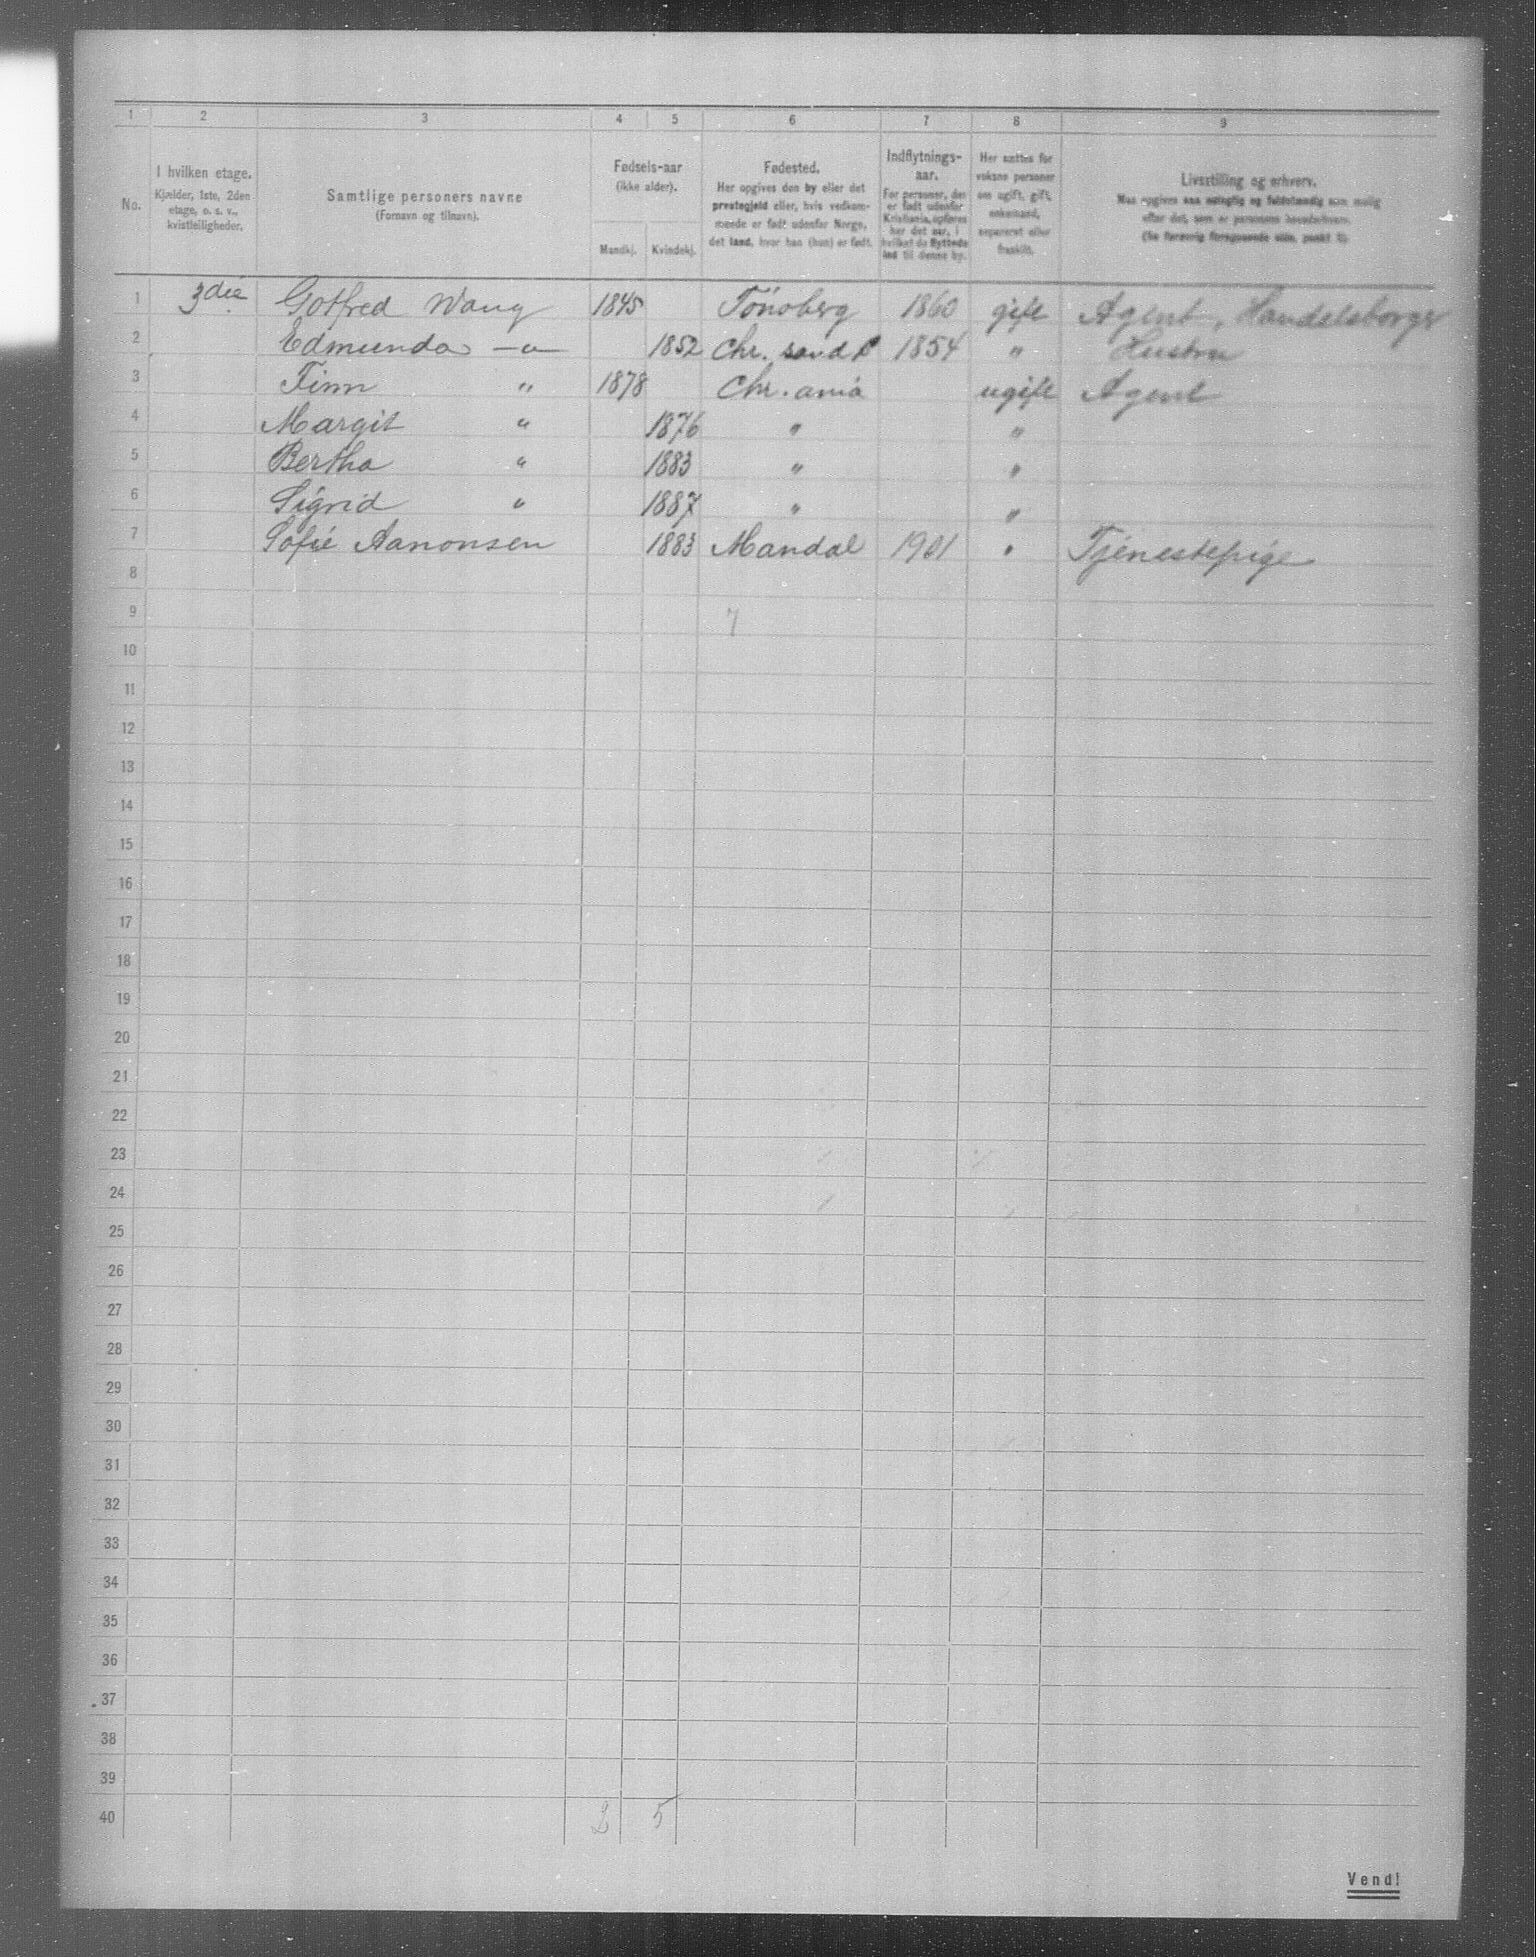 1 2 3 4 5 6 7 8 9
No.
I hvilken etage.
Kjælder, 1ste, 2den
etage, o. s. v.,
kvistleiligheder.
Samtlige personers navne
(Fornavn og tilnavn).
Fødsels-aar
(ikke alder).
Mandkj. Kvindekj.
Fødested.
Her opgives den by eller det
prestegjeld eller, hvis vedkom-
mende er født udenfor Norge,
det land, hvor han (hun) er født.
Indflytnings-
aar.
For personer, der
er født udenfor
Kristiania, opføres
her det aar, i
hvilket de flyttede
ind til denne by.
Her sættes for
voksne personer
om ugift, gift,
enkestand,
separeret eller
fraskilt.
Livsstilling og erhverv.
Maa opgives saa nøiagtig og fuldstændig som mulig
efter det, som er personens hovederhverv.
(Se forøvrig foregaaende side, punkt 2).
1 3die Gotfred Wang 1845 Tönsberg 1860 gift Agent, Handelsborger
2 Edmunda —"— 1852 Chr. sand S 1854 " Hustru
3 Finn " 1878 Chr. ania ugift Agent
4 Margit " 1876 " "
5 Bertha " 1883 " "
6 Sigrid " 1887 " "
7 Sofie Aanonsen 1883 Mandal 1901 " Tjenestepige
8
9 7
10
11
12
13
14
15
16
17
18
19
20
21
22
23
24
25
26
27
28
29
30
31
32
33
34
35
36
37
38
39
40 2 5
Vend!